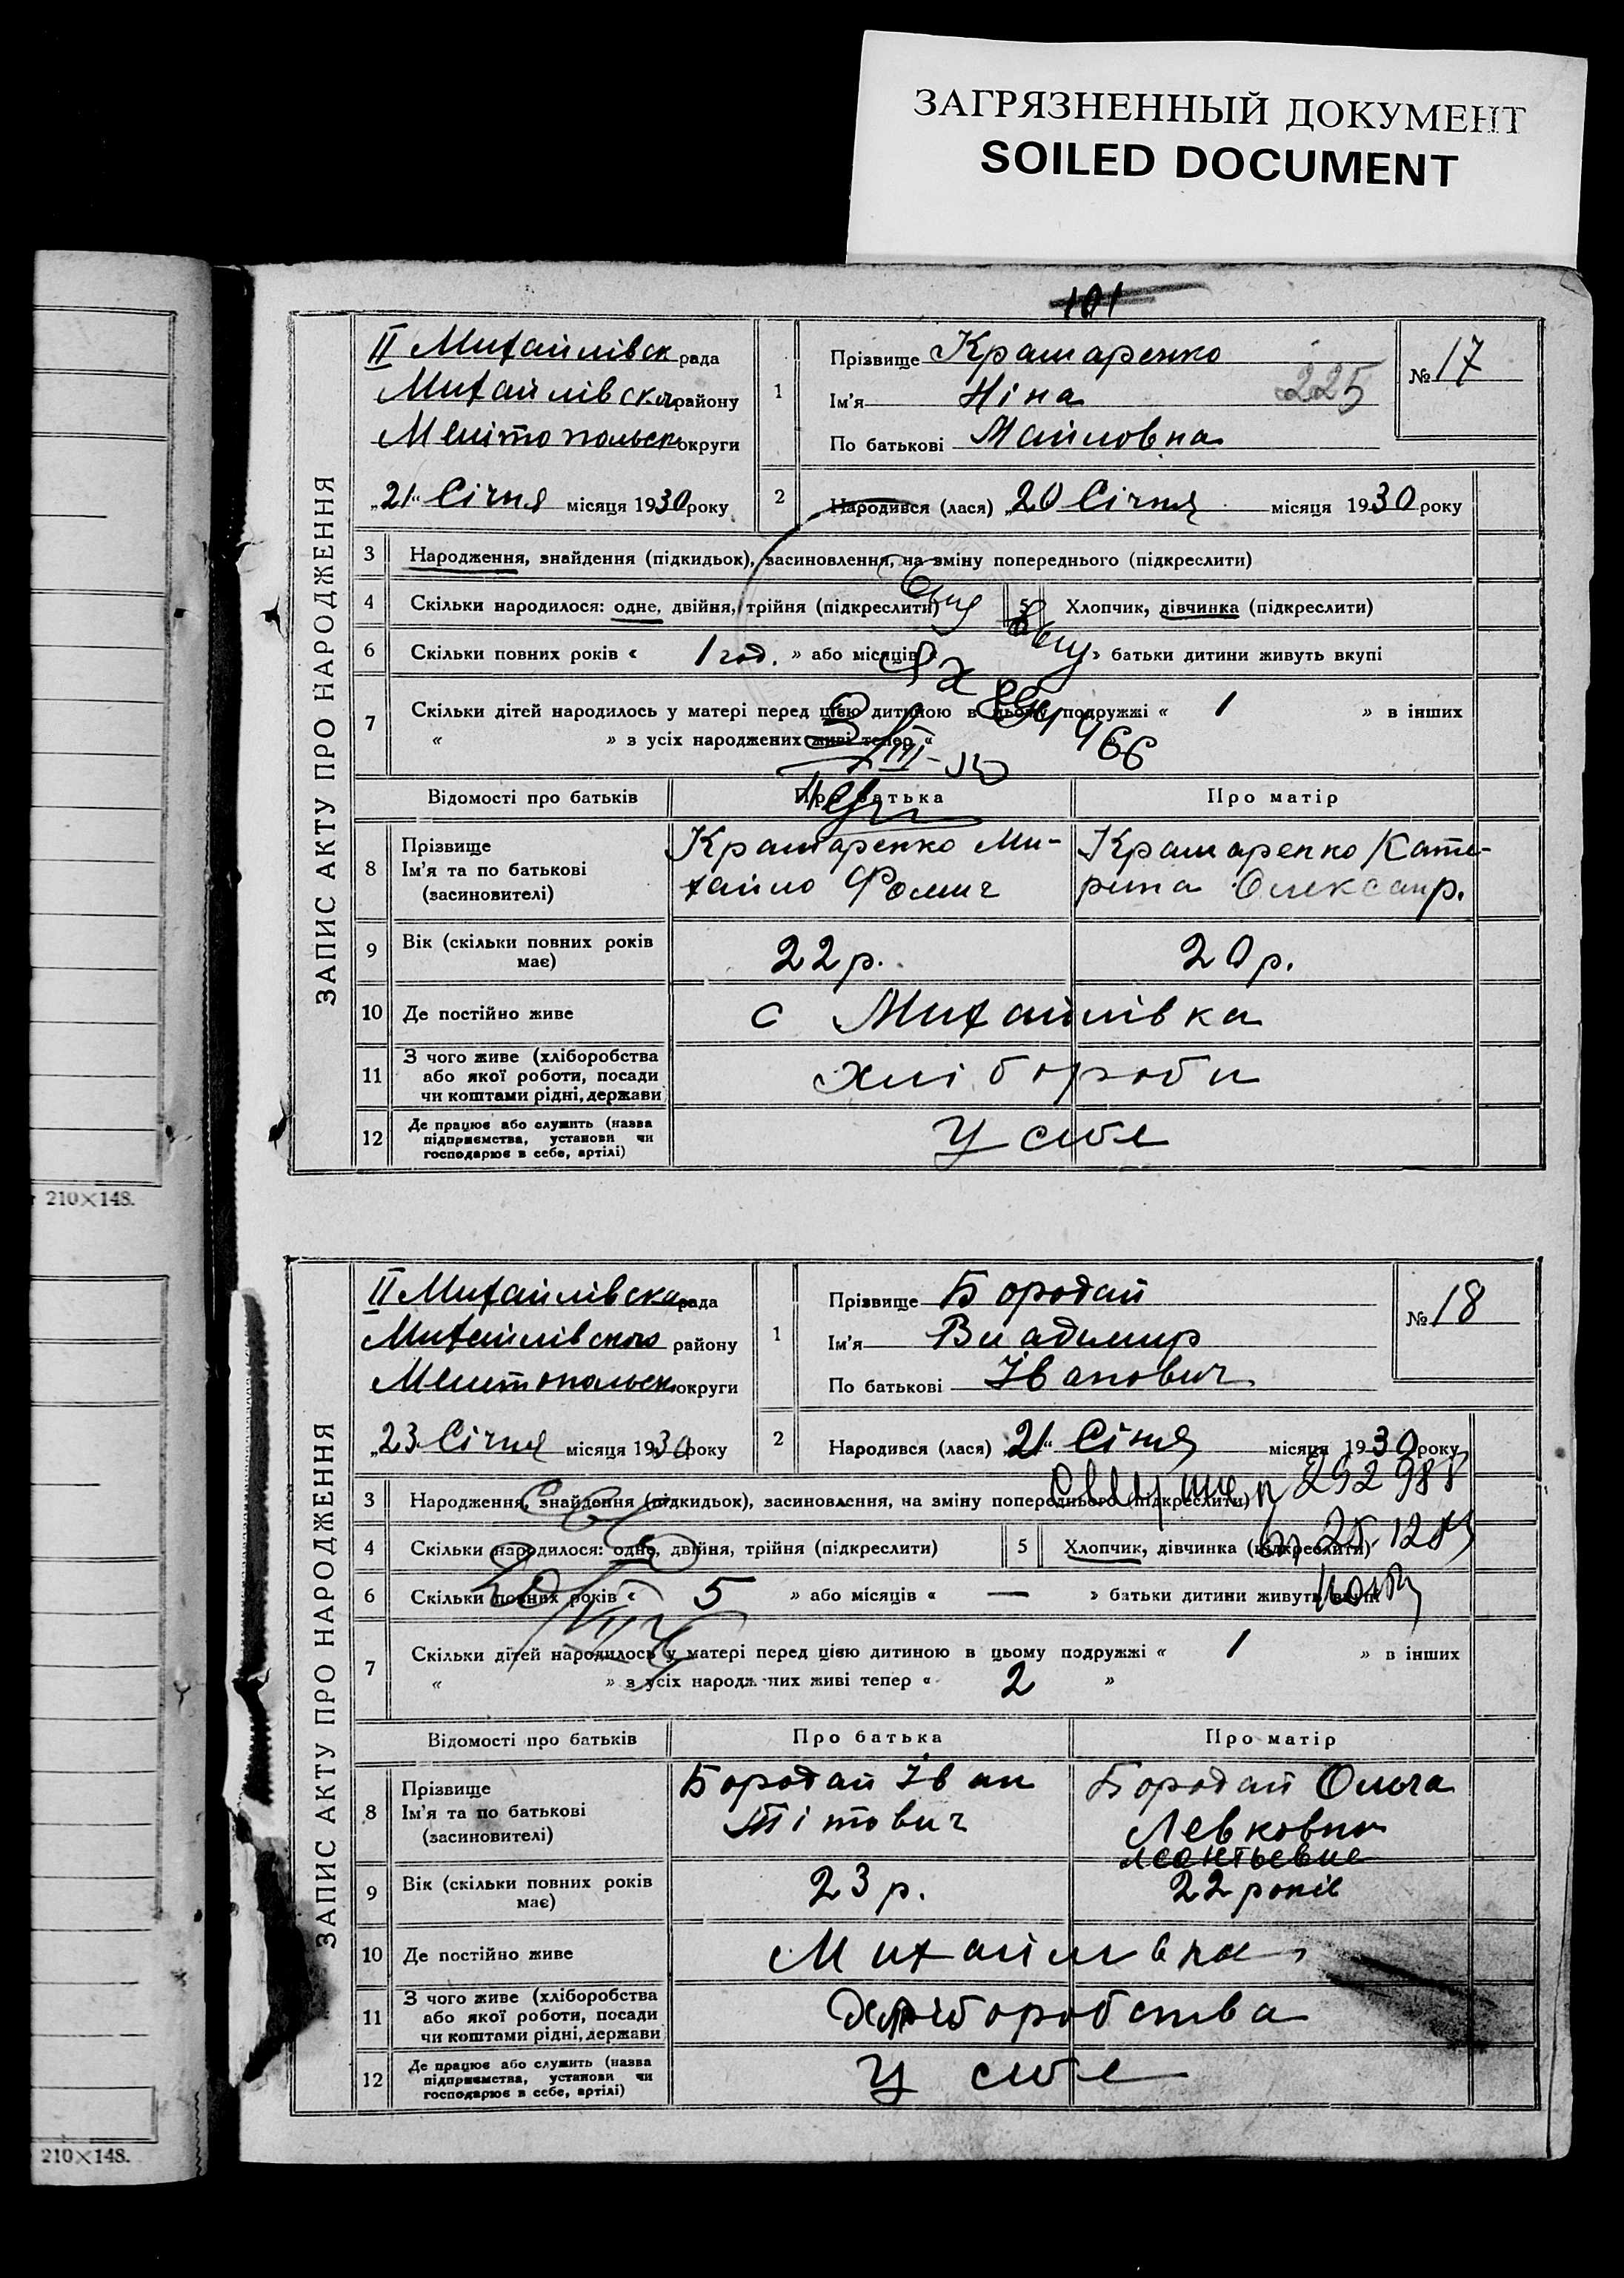 ЗАГРЯЗНЕННЫЙ ДОКУМЕНТ
SOILED DOCUMENT
101
ЗАПИС АКТУ ПРО НАРОДЖЕННЯ
II Михайлівск рада
Михайлівска району
Мелітопольск округи
„21“ Січня місяця 1930 року
1
Прізвище Крамаренко
Ім'я Ніна
225
По батькові Майловна
№ 17
2
Народився (лася) „20 Січня місяця 1930 року
3 Народження, знайдення (підкидьок), засиновлення, на зміну попереднього (підкреслити)
4 Скільки народилося: одне, двійня, трійня (підкреслити)
5 Хлопчик, дівчинка (підкреслити)
6 Скільки повних років « 1 год. » або місяців « » батьки дитини живуть вкупі
7 Скільки дітей народилось у матері перед цією дитиною в цьому подружжі « 1 » в інших
« » з усіх народжених живі тепер «
Відомості про батьків Про батька Про матір
8 Прізвище
Ім'я та по батькові
(засновителі)
Крамаренко Ми-
хайло Фомич
Крамаренко Кате-
рина Олександр.
9 Вік (скільки повних років має) 22 р. 20 р.
10 Де постійно живе с Михайлівка
11 З чого живе (хліборобства
або якої роботи, посади
чи коштами рідні, держави
хлібороби
12 Де працює або служить (назва
підприємства, установи чи
господарює в себе, артілі)
У себе
210×148.
ЗАПИС АКТУ ПРО НАРОДЖЕННЯ
II Михайлівска рада
Михайлівского району
Мелітопольск округи
„23 Січня місяця 1930 року
1
Прізвище Бородай
Ім'я Владимир
По батькові Іванович
№ 18
2
Народився (лася) 21“ Січня місяця 1930 року
292988
3 Народження, знайдення (підкидьок), засиновлення, на зміну попереднього (підкреслити)
4 Скільки народилося: одне, двійня, трійня (підкреслити)
5 Хлопчик, дівчинка (підкреслити)
6 Скільки повних років « 5 » або місяців « — » батьки дитини живуть вкупі
7 Скільки дітей народилось у матері перед цією дитиною в цьому подружжі « 1 » в інших
« » з усіх народжених живі тепер « 2 »
Відомості про батьків Про батька Про матір
8 Прізвище
Ім'я та по батькові
(засновителі)
Бородай Іван
Тітович
Бородай Ольга
Левковна
Леонтьевне
9 Вік (скільки повних років має) 23 р. 22 років
10 Де постійно живе Михайлівка
11 З чого живе (хліборобства
або якої роботи, посади
чи коштами рідні, держави
Хліборобства
12 Де працює або служить (назва
підприємства, установи чи
господарює в себе, артілі)
У себе
210×148.